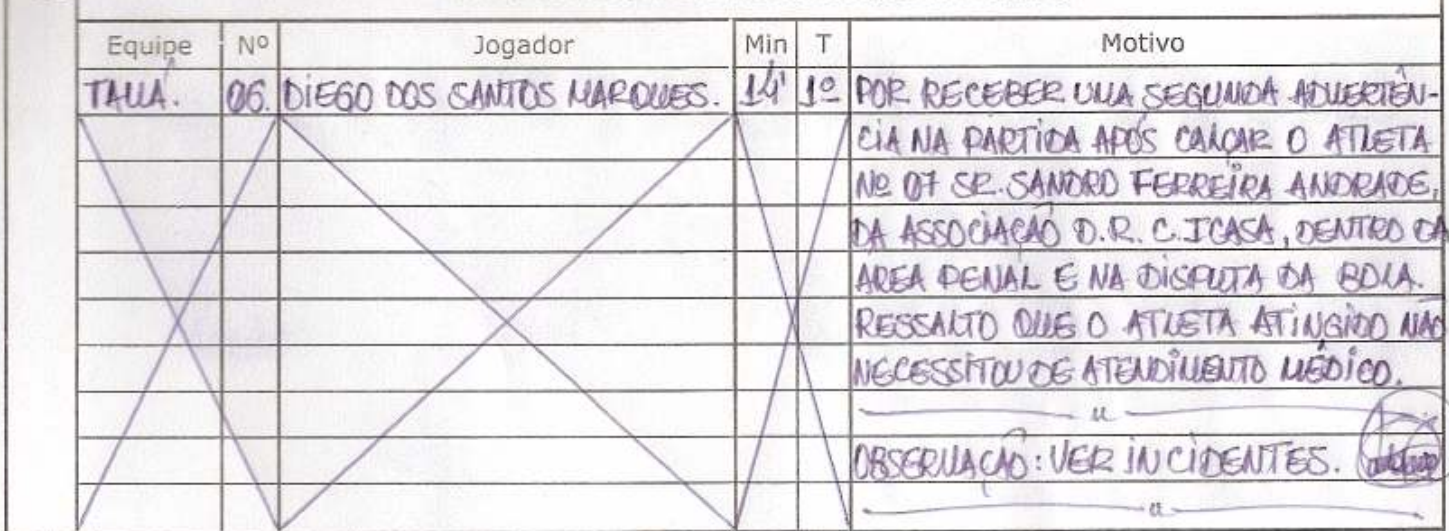 Equipe Nº Jogador Min T Motivo
TAUÁ. 06. DIEGO DOS SANTOS MARQUES. 14' 1º POR RECEBER UMA SEGUNDA ADVERTÊN-
CIA NA PARTIDA APÓS CALÇAR O ATLETA
Nº 07 SR. SANDRO FERREIRA ANDRADE,
DA ASSOCIAÇÃO D.R.C. ICASA, DENTRO DA
ÁREA PENAL E NA DISPUTA DA BOLA.
RESSALTO QUE O ATLETA ATINGIDO NÃO
NECESSITOU DE ATENDIMENTO MÉDICO.
OBSERVAÇÃO: VER INCIDENTES.